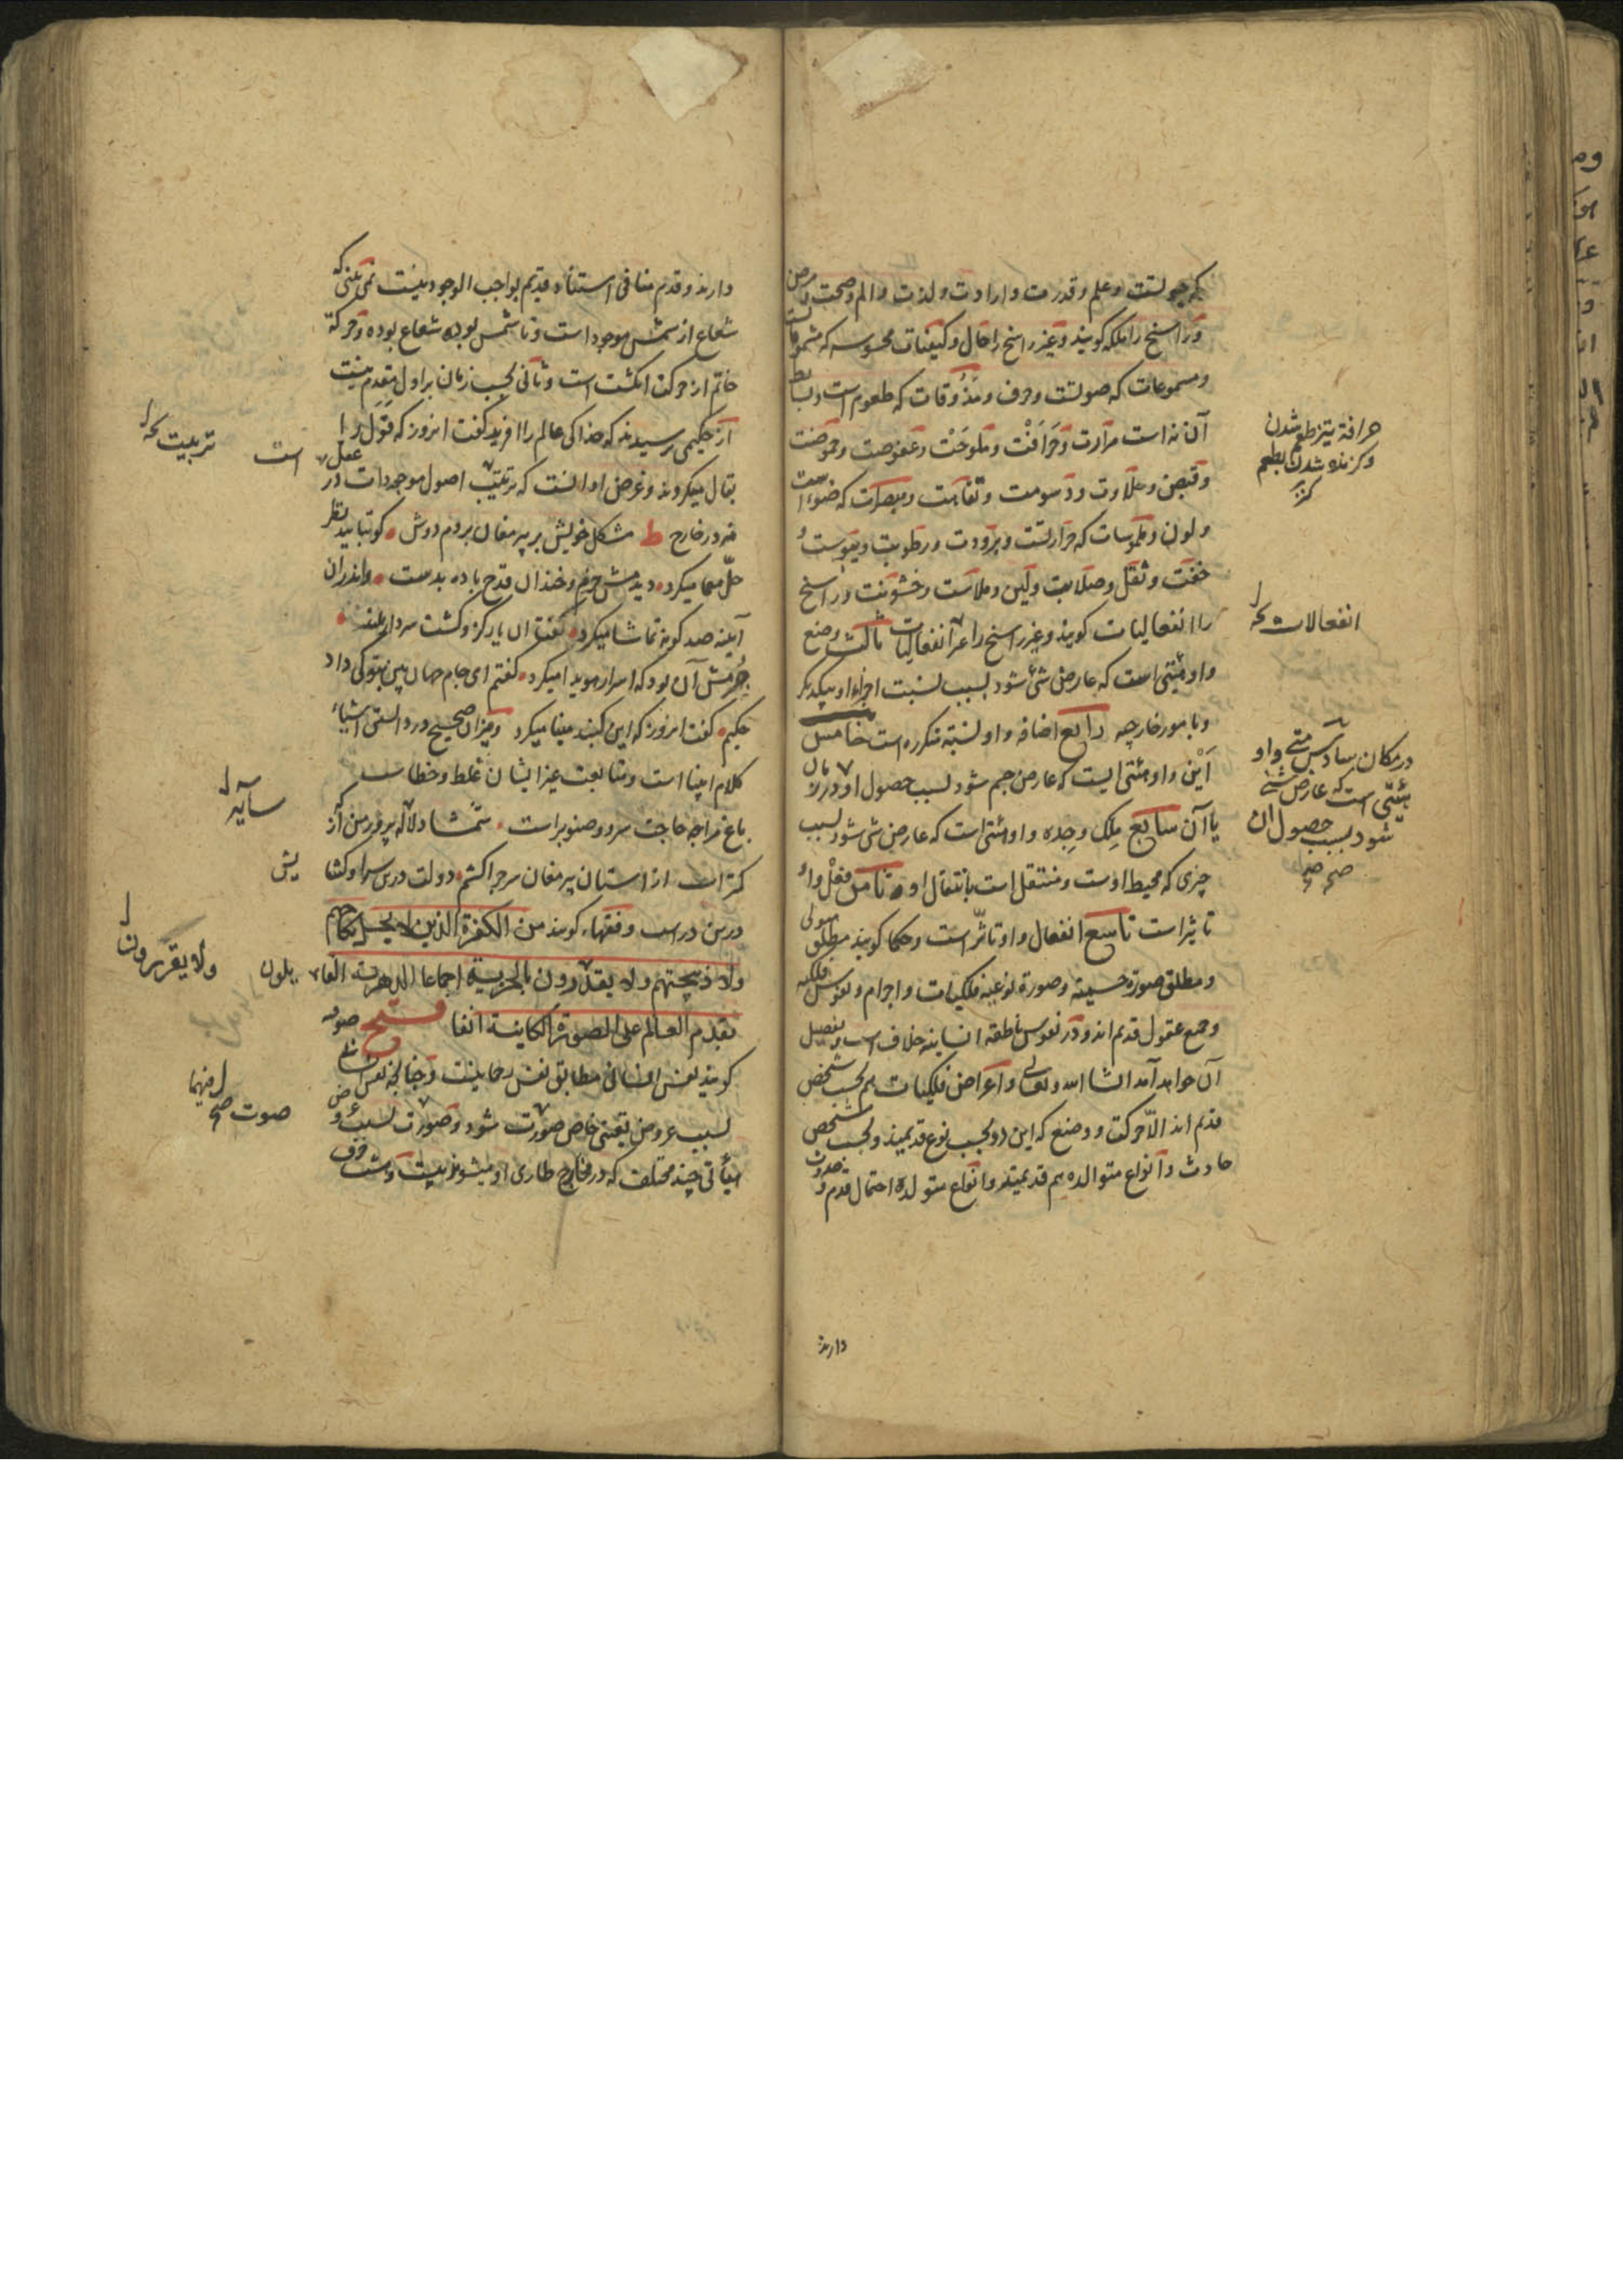 که حیوتست و علم و قدرت و ارادت و لذت و الم و صحت و مرض
و راسخ را ملکه گویند و غیر راسخ را حال و کیفیات محسوسه که مشمومات
و مسموعات که صوتست و حرف و مذوقات که طعوم است و بسایط
آن نه است مرارت و حرافت و ملوحت و عفوصت و حموضت
و قبض و حلاوت و دسومت و تفاهت و مبصرات که ضوء است
و لون و ملموسات که حرارتست و برودت و رطوبت و یبوست و
خفت و ثقل و صلابت و لین و ملاست و خشونت و راسخ
را انفعالیات گویند و غیر راسخ را غیر انفعالیات ثالث وضع
و او هیئتی است که عارض شئ شود بسبب نسبت اجزاء او بیکدیگر
و بامور خارجه رابع اضافه و او نسبته متکرره است خامس
این و او هیئتی است که عارض جسم شود بسبب حصول او در زمان
یا آن سابع ملک و جده و او هیئتی است که عارض شی شود بسبب
چیزی که محیط اوست و منتقل است بانتقال او ثامن فعل و او
تاثیر است تاسع انفعال و او تاثر است و حکما گویند مطلق هیولی
و مطلق صورة جسمیه و صورة نوعیه فلکیات و اجرام و نفوس فلکیه
و جمع عقول قدیم اند و در نفوس ناطقه انسانیه خلاف است و تفصیل
آن خواهد آمد انشا الله تعالی و اعراض فلکیات هم بحسب شخص
قدیم اند الا حرکت و وضع که این دو بحسب نوع قدیمند و بحسب شخص
حادث و انواع متوالده هم قدیمند و انواع متولده احتمال قدم و حدوث
دارند
حرافة تیز طعم شدن
و کزنده شدن بطعم
کنز
انفعالات نخه
در مکان سادس متی و او
هیئتی است که عارض شئ
شود بسبب حصول ان
صح صح
دارند و قدم منافی استناد قدیم بواجب الوجود نیست نمی بینی که
شعاع از شمس موجود است و تا شمس بوده شعاع بوده و حرکة
خاتم از حرکت انکشت است و ثانی بحسب زمان بر اول مقدم نیست
از حکیمی پرسیدند که خدا کی عالم را افرید گفت انروز که قول را
بقال میکردند و غرض او انست که ترتیب اصول موجودات در عقل
نه در خارج ط مشکل خویش بر پیر مغان بردم دوش کو بتایید نظر
حل معما میکرد دیدمش خرم و خندان قدح باده بدست واندران
آینه صد کونه تماشا میکرد گفت ان یار کزو گشت سر دار بلند
جرمش آن بود که اسرار هویدا میکرد گفتم ای جام جهان بین بتو کی داد
حکیم گفت انروز که این گنبد مینا میکرد و میزان صحیح در دانستن اشیاء
کلام انبیا است و متابعت غیر ایشان غلط و خطاست
باغ مرا چه حاجت سرو و صنوبر است شمشاد لاله پرور من از که
کمتر است از استان پیر مغان سر چرا کشم دولت درین سرا و کشا
درین در است و فقهاء گویند من الکفرة الذین لا یحل نکاحهم
ولا ذبیحتهم ولا یقدرون بالجزیة اجماعا الدهریه القا
بقدم العالم علی الصورة الکاینة انفا فتح صوفیه
گویند نفس انسانی مطابق نفس رحمانیست و چنانچه نفس انسانی
بسبب عروض تعینی خاص صورت شود و صورت بسبب عروض
هیأتی چند مختلف که در مخارج طاری او میشود بیست و هشت حرف
تربیت نخه
است
سایه
یش
ولا یقررون
یلون
صوت صح
فیهما